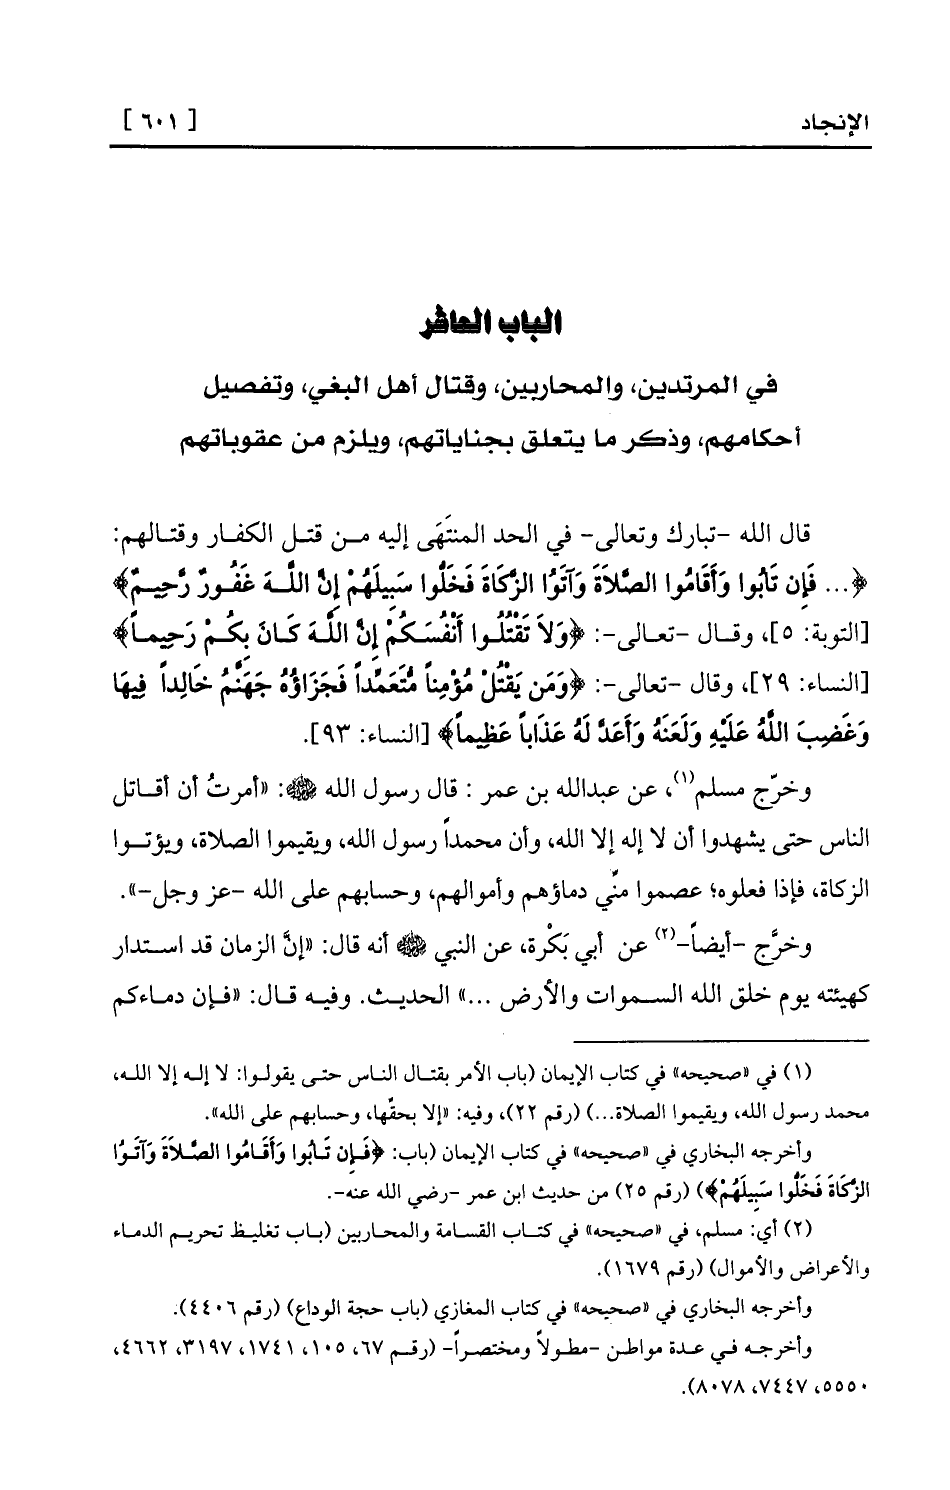 الإنجاد
[ ٦٠١ ]
الباب العاشر
في المرتدين، والمحاربين، وقتال أهل البغي، وتفصيل
أحكامهم، وذكر ما يتعلق بجناياتهم، ويلزم من عقوباتهم
قال الله -تبارك وتعالى- في الحد المنتَهَى إليه مـن قتـل الكفـار وقتـالهم:
﴿... فَإِن تَابُوا وَأَقَامُوا الصَّلاَةَ وَآتَوُا الزَّكَاةَ فَخَلُّوا سَبِيلَهُمْ إِنَّ اللَّـهَ غَفُورٌ رَّحِيـمٌ﴾
[التوبة: ٥]، وقـال -تعـالى-: ﴿وَلاَ تَقْتُلُـوا أَنْفُسَكُمْ إِنَّ اللَّهَ كَـانَ بِكُـمْ رَحِيمـاً﴾
[النساء: ٢٩]، وقال -تعالى-: ﴿وَمَن يَقْتُلْ مُؤْمِناً مُّتَعَمِّداً فَجَزَاؤُهُ جَهَنَّمُ خَالِداً فِيهَا
وَغَضِبَ اللَّهُ عَلَيْهِ وَلَعَنَهُ وَأَعَدَّ لَهُ عَذَاباً عَظِيماً﴾ [النساء: ٩٣].
وخرّج مسلم(١)، عن عبدالله بن عمر : قال رسول الله ﷺ: «أمرتُ أن أقـاتل
الناس حتى يشهدوا أن لا إله إلا الله، وأن محمداً رسول الله، ويقيموا الصلاة، ويؤتـوا
الزكاة، فإذا فعلوه؛ عصموا منّي دماؤهم وأموالهم، وحسابهم على الله -عز وجل-».
وخرَّج -أيضاً-(٢) عن أبي بَكْرة، عن النبي ﷺ أنه قال: «إنَّ الزمان قد استـدار
كهيئته يوم خلق الله السـموات والأرض ...» الحديـث. وفيـه قـال: «فـإن دمـاءكم
(١) في «صحيحه» في كتاب الإيمان (باب الأمر بقتـال النـاس حتـى يقولـوا: لا إلـه إلا اللـه،
محمد رسول الله، ويقيموا الصلاة...) (رقم ٢٢)، وفيه: «إلا بحقّها، وحسابهم على الله».
وأخرجه البخاري في «صحيحه» في كتاب الإيمان (باب: ﴿فَـإِن تَـابُوا وَأَقَـامُوا الصَّلاَةَ وَآتَـوُا
الزَّكَاةَ فَخَلُّوا سَبِيلَهُمْ﴾) (رقم ٢٥) من حديث ابن عمر -رضي الله عنه-.
(٢) أي: مسلم، في «صحيحه» في كتـاب القسامة والمحـاربين (بـاب تغليـظ تحريـم الدمـاء
والأعراض والأموال) (رقم ١٦٧٩).
وأخرجه البخاري في «صحيحه» في كتاب المغازي (باب حجة الوداع) (رقم ٤٤٠٦).
وأخرجـه فـي عـدة مواطـن -مطـولاً ومختصـراً- (رقـم ٦٧، ١٠٥، ١٧٤١، ٣١٩٧، ٤٦٦٢،
٥٥٥٠، ٧٤٤٧، ٨٠٧٨).